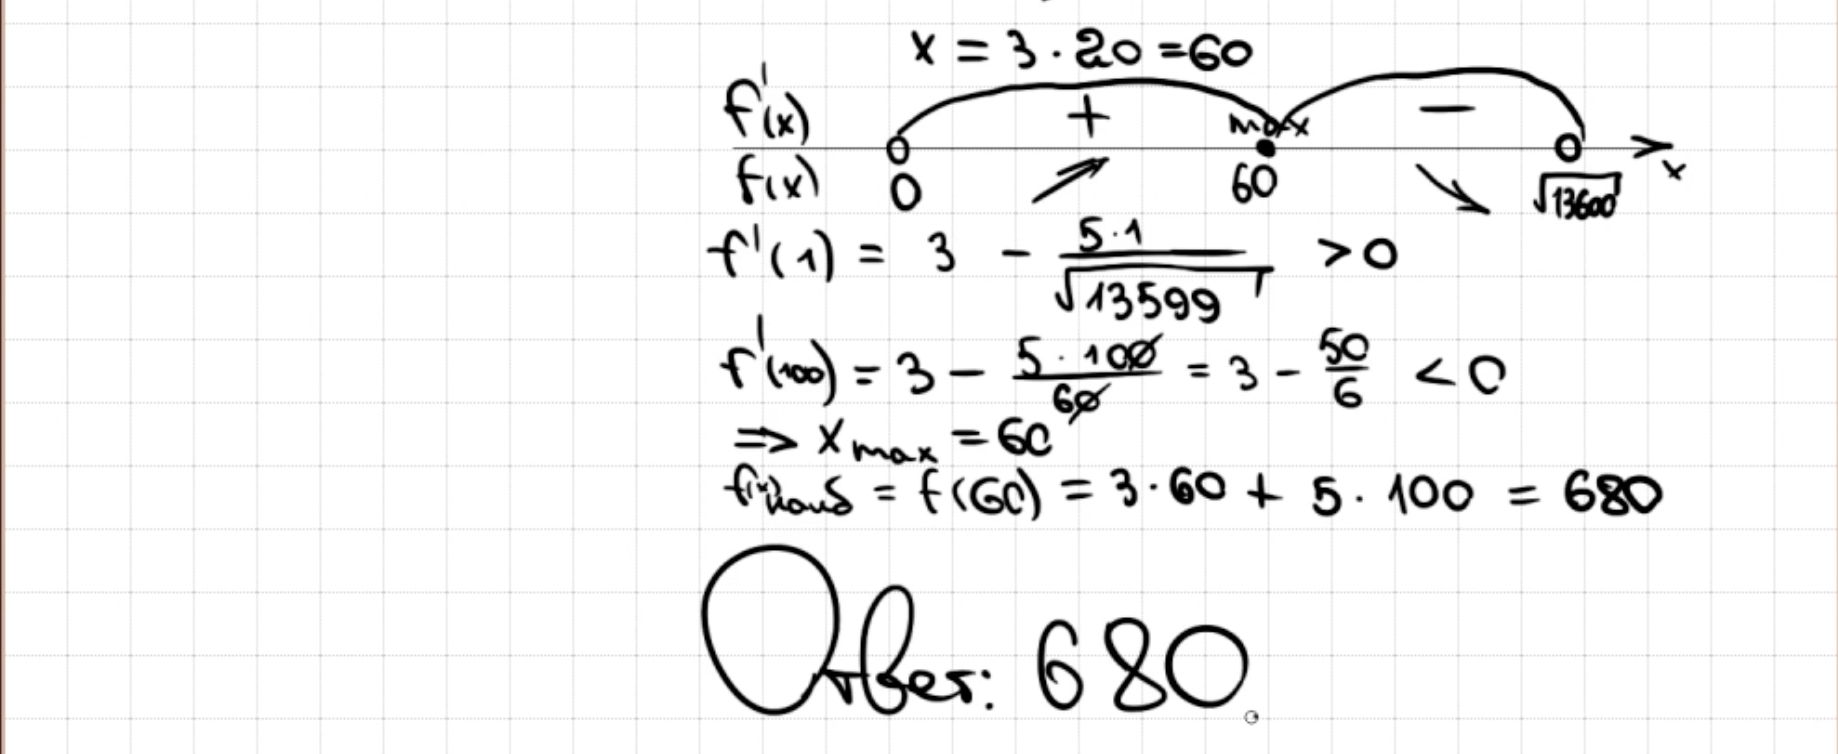 x = 3 · 20 = 60
f'(x) + max −
f(x) 0 60 √13600 x
f'(1) = 3 − 5·1/√13599 > 0
f'(100) = 3 − 5·100/60 = 3 − 50/6 < 0
⇒ x max = 60
f(x)наиб = f(60) = 3·60 + 5·100 = 680
Ответ: 680